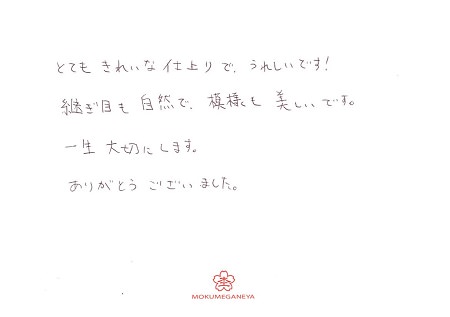 とても きれいな 仕上りで、うれしいです!
継ぎ目も 自然で、模様も 美しいです。
一生 大切にします。
ありがとう ございました。
MOKUMEGANEYA